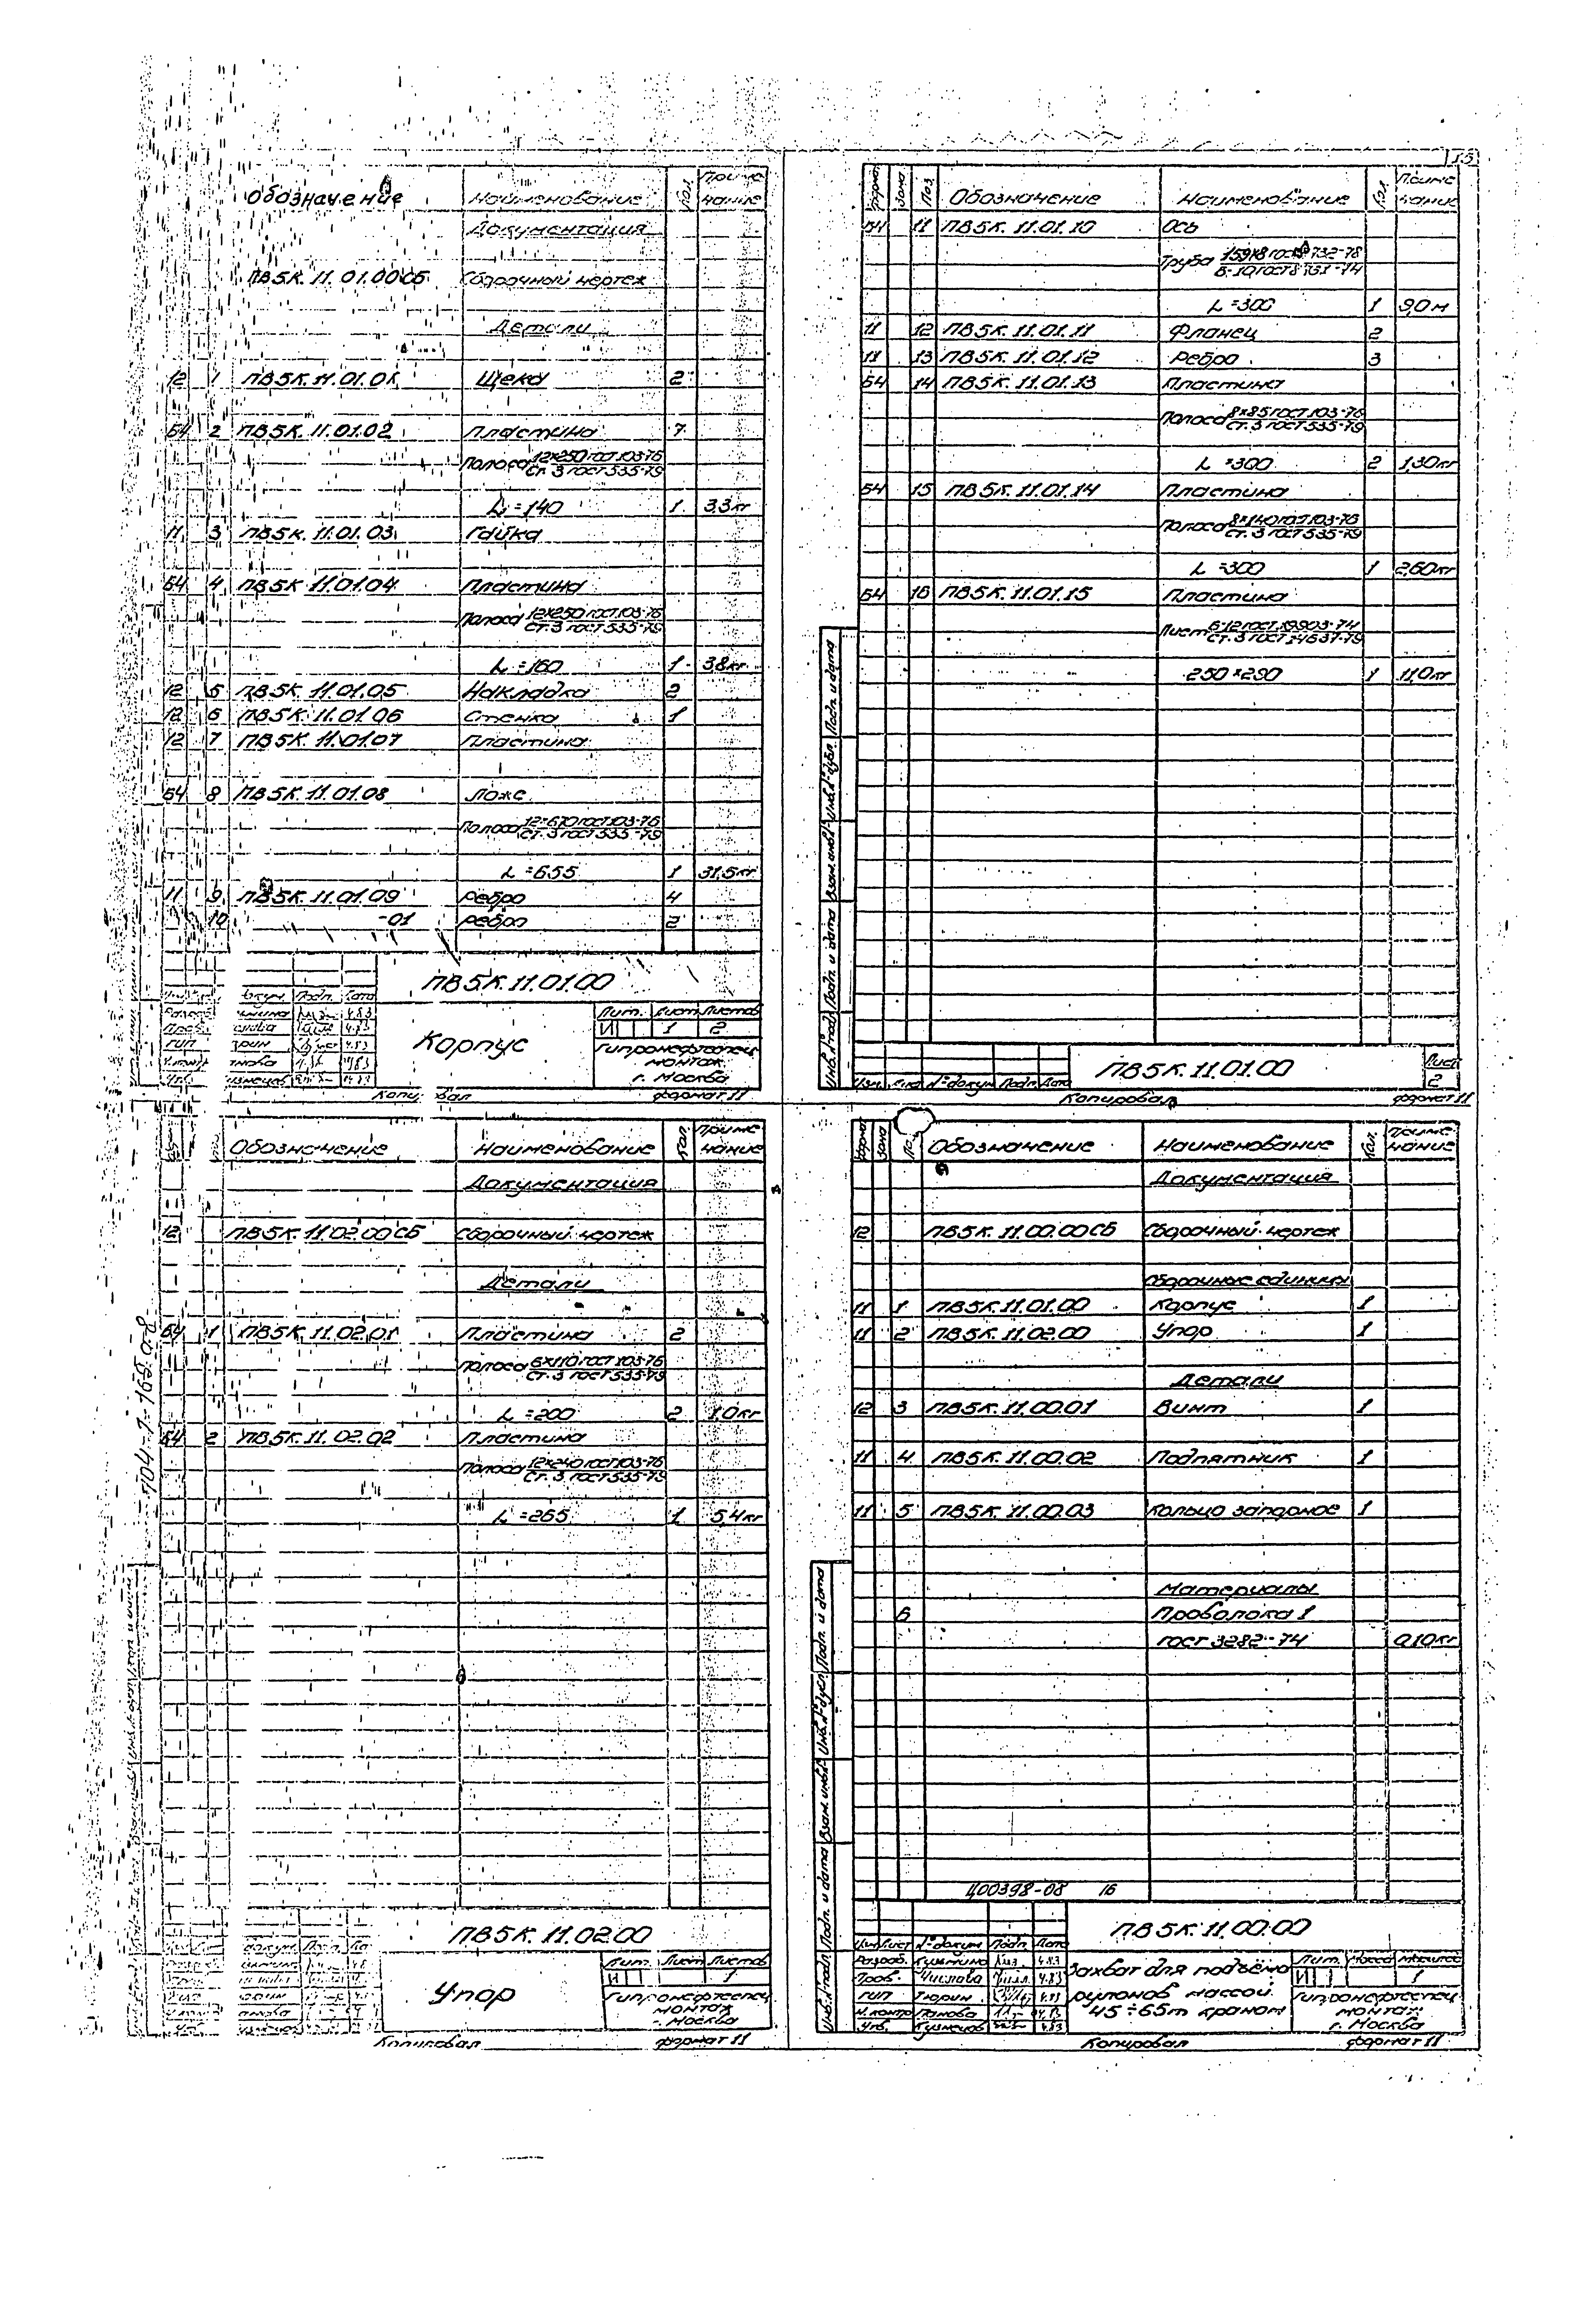 15
Обозначение Наименование Кол. Приме чание
Документация
ПВ5К.11.01.00СБ Сборочный чертеж
Детали
12 1 ПВ5К.11.01.01 Щека 2
БЧ 2 ПВ5К.11.01.02 Пластина 7
Полоса 12×250 ГОСТ 103-76
Ст.3 ГОСТ 535-79
L=140 1 3,3кг
11 3 ПВ5К.11.01.03 Гайка
БЧ 4 ПВ5К.11.01.04 Пластина
Полоса 12×250 ГОСТ 103-76
Ст.3 ГОСТ 535-79
L=160 1 3,8кг
12 5 ПВ5К.11.01.05 Накладка 2
12 6 ПВ5К.11.01.06 Стенка 1
12 7 ПВ5К.11.01.07 Пластина
БЧ 8 ПВ5К.11.01.08 Ложе
Полоса 12×610 ГОСТ 103-76
Ст.3 ГОСТ 535-79
L=655 1 31,5кг
11 9 ПВ5К.11.01.09 Ребро 4
10 -01 Ребро 2
ПВ5К.11.01.00
Корпус
Лит. Лист Листов
И 1 2
Гипронефтеспец
монтаж
г. Москва
Копировал Формат 11
Формат Зона Поз. Обозначение Наименование Кол. Приме чание
БЧ 11 ПВ5К.11.01.10 Ось
Труба 159×8 ГОСТ 8732-78
Б-10 ГОСТ 8731-74
L=300 1 9,0 м
11 12 ПВ5К.11.01.11 Фланец 2
11 13 ПВ5К.11.01.12 Ребро 3
БЧ 14 ПВ5К.11.01.13 Пластина
Полоса 8×85 ГОСТ 103-76
Ст.3 ГОСТ 535-79
L=300 2 1,30кг
БЧ 15 ПВ5К.11.01.14 Пластина
Полоса 8×140 ГОСТ 103-76
Ст.3 ГОСТ 535-79
L=300 1 2,60кг
БЧ 16 ПВ5К.11.01.15 Пластина
Лист Б-12 ГОСТ 19903-74
Ст.3 ГОСТ 14637-79
250×290 1 11,0кг
Инв.№подл. Подп. и дата Взам.инв.№ Инв.№дубл. Подп. и дата
Изм. Лист №докум. Подп. Дата
ПВ5К.11.01.00
Лист
2
Копировал Формат 11
Обозначение Наименование Кол. Приме чание
Документация
12 ПВ5К.11.02.00СБ Сборочный чертеж
Детали
БЧ 1 ПВ5К.11.02.01 Пластина 2
Полоса 6×110 ГОСТ 103-76
Ст.3 ГОСТ 535-79
L=200 2 1,0кг
БЧ 2 ПВ5К.11.02.02 Пластина
Полоса 12×240 ГОСТ 103-76
Ст.3 ГОСТ 535-79
L=265 1 5,4кг
ПВ5К.11.02.00
Упор
Лит. Лист Листов
И 1
Гипронефтеспец
монтаж
г. Москва
Копировал Формат 11
Формат Зона По Обозначение Наименование Кол. Приме чание
Документация
12 ПВ5К.11.00.00СБ Сборочный чертеж
Сборочные единицы
11 1 ПВ5К.11.01.00 Корпус 1
11 2 ПВ5К.11.02.00 Упор 1
Детали
12 3 ПВ5К.11.00.01 Винт 1
11 4 ПВ5К.11.00.02 Подпятник 1
11 5 ПВ5К.11.00.03 Кольцо запорное 1
Материалы
6 Проволока 1
ГОСТ 3282-74 0,10кг
Ц00398-08 16
Инв.№подл. Подп. и дата Взам.инв.№ Инв.№дубл. Подп. и дата
ПВ5К.11.00.00
Изм. Лист №докум. Подп. Дата
Разраб. Кузмина 4.83
Пров. Числова 4.83
ГИП Тюрин 4.83
Н.контр. Панова
Утв. Кузнецов 4.83
Захват для подъёма
рулонов массой
45÷65т краном
Лит. Масса Масштаб
И 1
Гипронефтеспец
монтаж
г. Москва
Копировал Формат 11